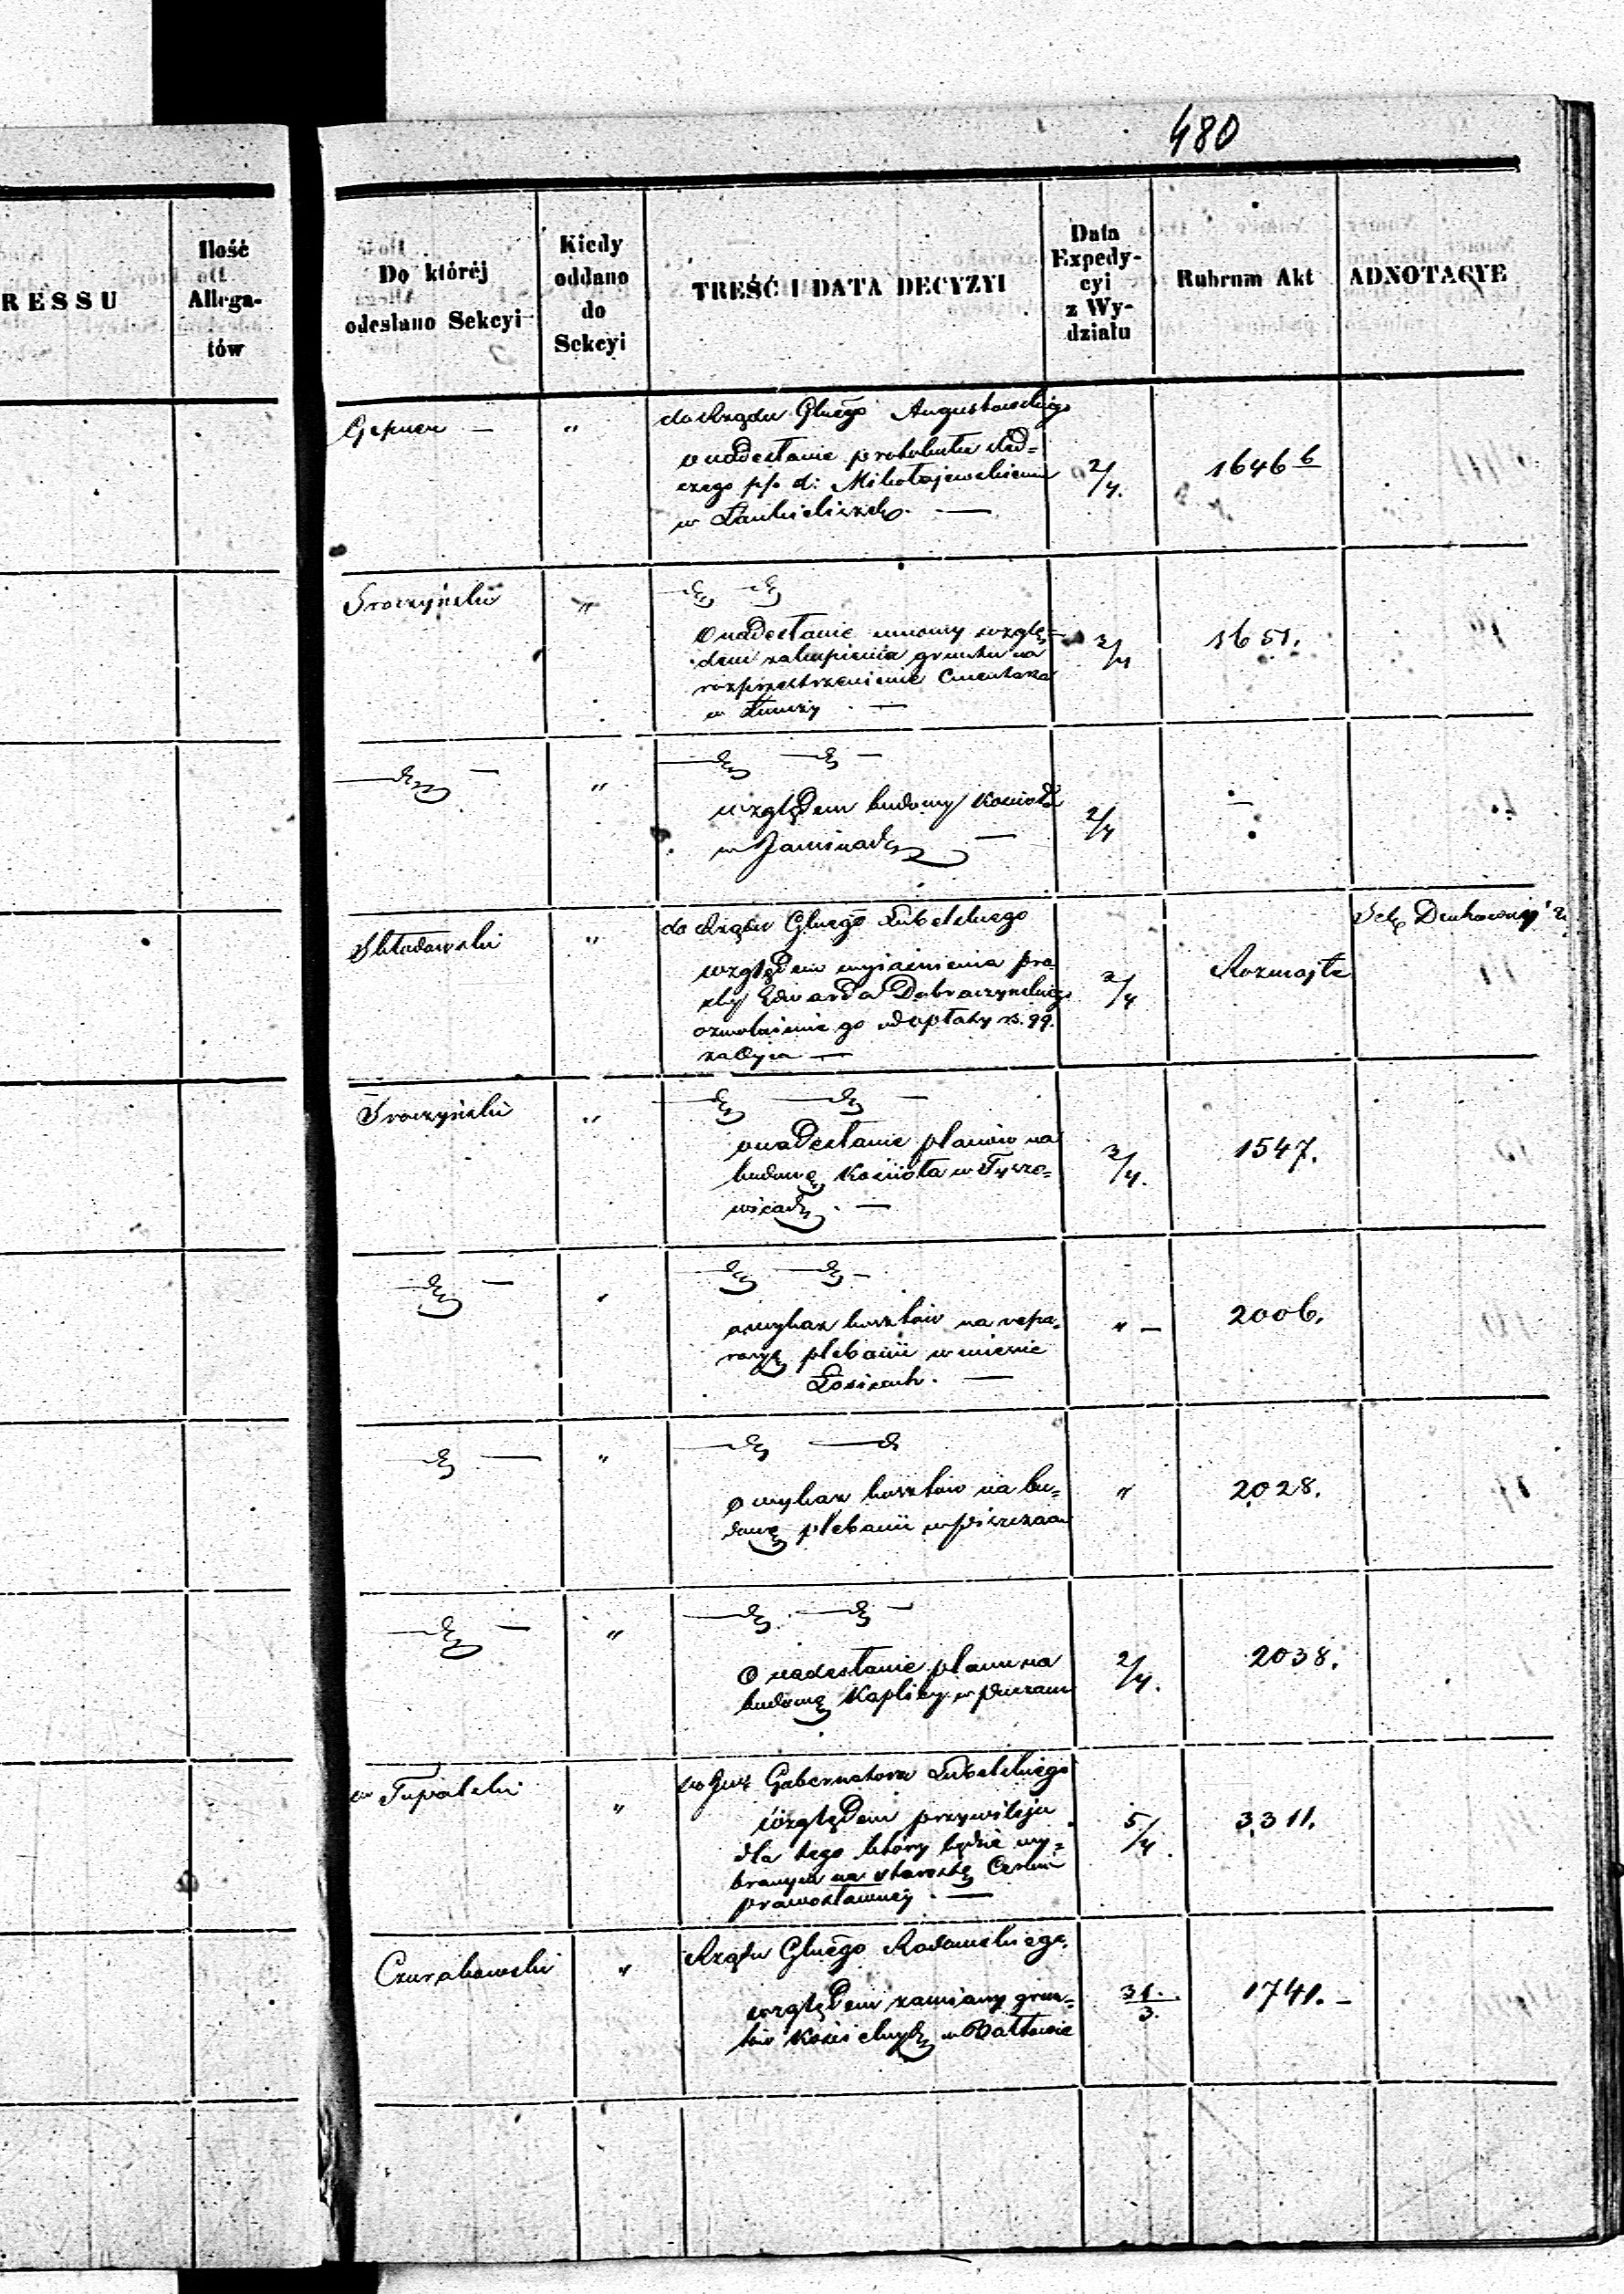 480
RESSU
Ilość
Allega-
tów
Do któréj
odesłano Sekcyi
Kiedy
oddano
do
Sekcyi
TREŚĆ I DATA DECYZYI
Data
Expedy-
cyi
z Wy-
działu
Rubrum Akt
ADNOTACYE
Gepner — "
do Rządu Glnego Augustowskiego
o nadesłanie protokułu śled=
czego p/o d: Mikołajewskiemu
w
2/4.
1646 6
Sroczyński "
O nadesłanie umowy wzglę=
dem zakupienia gruntu na
rozprzestrzenienie Cmentarza
w Łomży . —
2/4
1651.
"
względem budowy Kościoła
w Janinach
2/4
Składowski "
do Rządu Glnego Lubelskiego
względem wyjaśnienia pro-
śby Edwarda Dobraczyńskiego
o zwolnienie go od opłaty rs. 99.
za Ojca —
2/4
Rozmaite
Sroczyński "
o nadesłanie planów na
budowę Kościoła w Tyszo=
wicach . —
2/4.
1547.
o wykaz kosztów na repa-
racyę plebanii w mieście
Łosicach . —
" —
2006.
"
O wykaz kosztów na bu=
dowę plebanii w
"
2028.
"
O nadesłanie planu na
budowę Kaplicy w
2/4.
2038.
"
Gubernatora Lubelskiego
względem przywileju
dla tego który będzie wy=
branym na starostę Cerkwi
prawosławnéj . —
5/4
3311.
"
Rządu Glnego Radomskiego
względem zamiany grun=
tów Kościelnych w Bałtowie
31./3.
1741. —